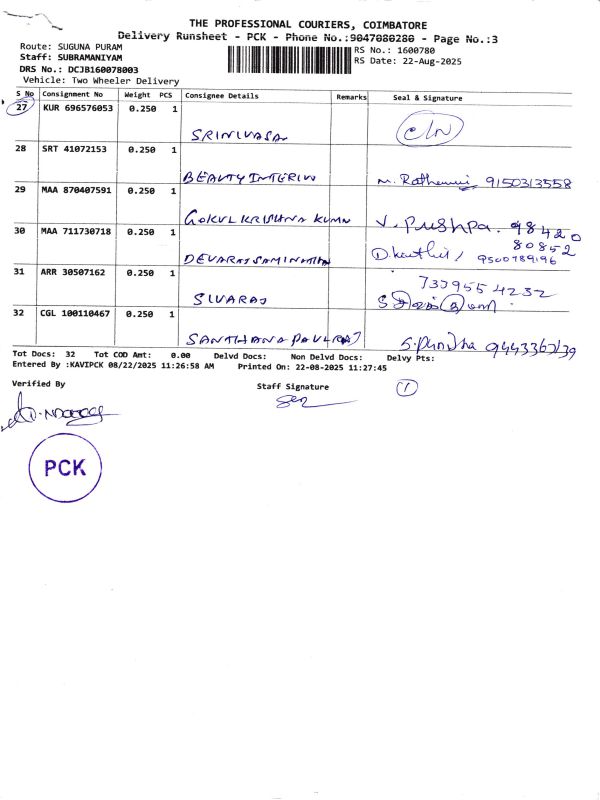 THE PROFESSIONAL COURIERS, COIMBATORE
Delivery Runsheet - PCK - Phone No.:9047080280 - Page No.:3
Route: SUGUNA PURAM
Staff: SUBRAMANIYAM
DRS No.: DCJB160078003
Vehicle: Two Wheeler Delivery
RS No.: 1600780
RS Date: 22-Aug-2025
S No Consignment No Weight PCS Consignee Details Remarks Seal & Signature
27 KUR 696576053 0.250 1
SRINIVASAN
28 SRT 41072153 0.250 1
BEAUTY INTERIW 9150313558
29 MAA 870407591 0.250 1
GOKUL KRISHNA KUMAR V. Pushpa. 98420
80852
30 MAA 711730718 0.250 1
DEVARAJ SAMINATHAN 9500789196
31 ARR 30507162 0.250 1 7339554232
SIVARAJ
32 CGL 100110467 0.250 1
SANTHANA PAULRAJ
Tot Docs: 32 Tot COD Amt: 0.00 Delvd Docs: Non Delvd Docs: Delvy Pts:
Entered By :KAVIPCK 08/22/2025 11:26:58 AM Printed On: 22-08-2025 11:27:45
Verified By Staff Signature 1
PCK